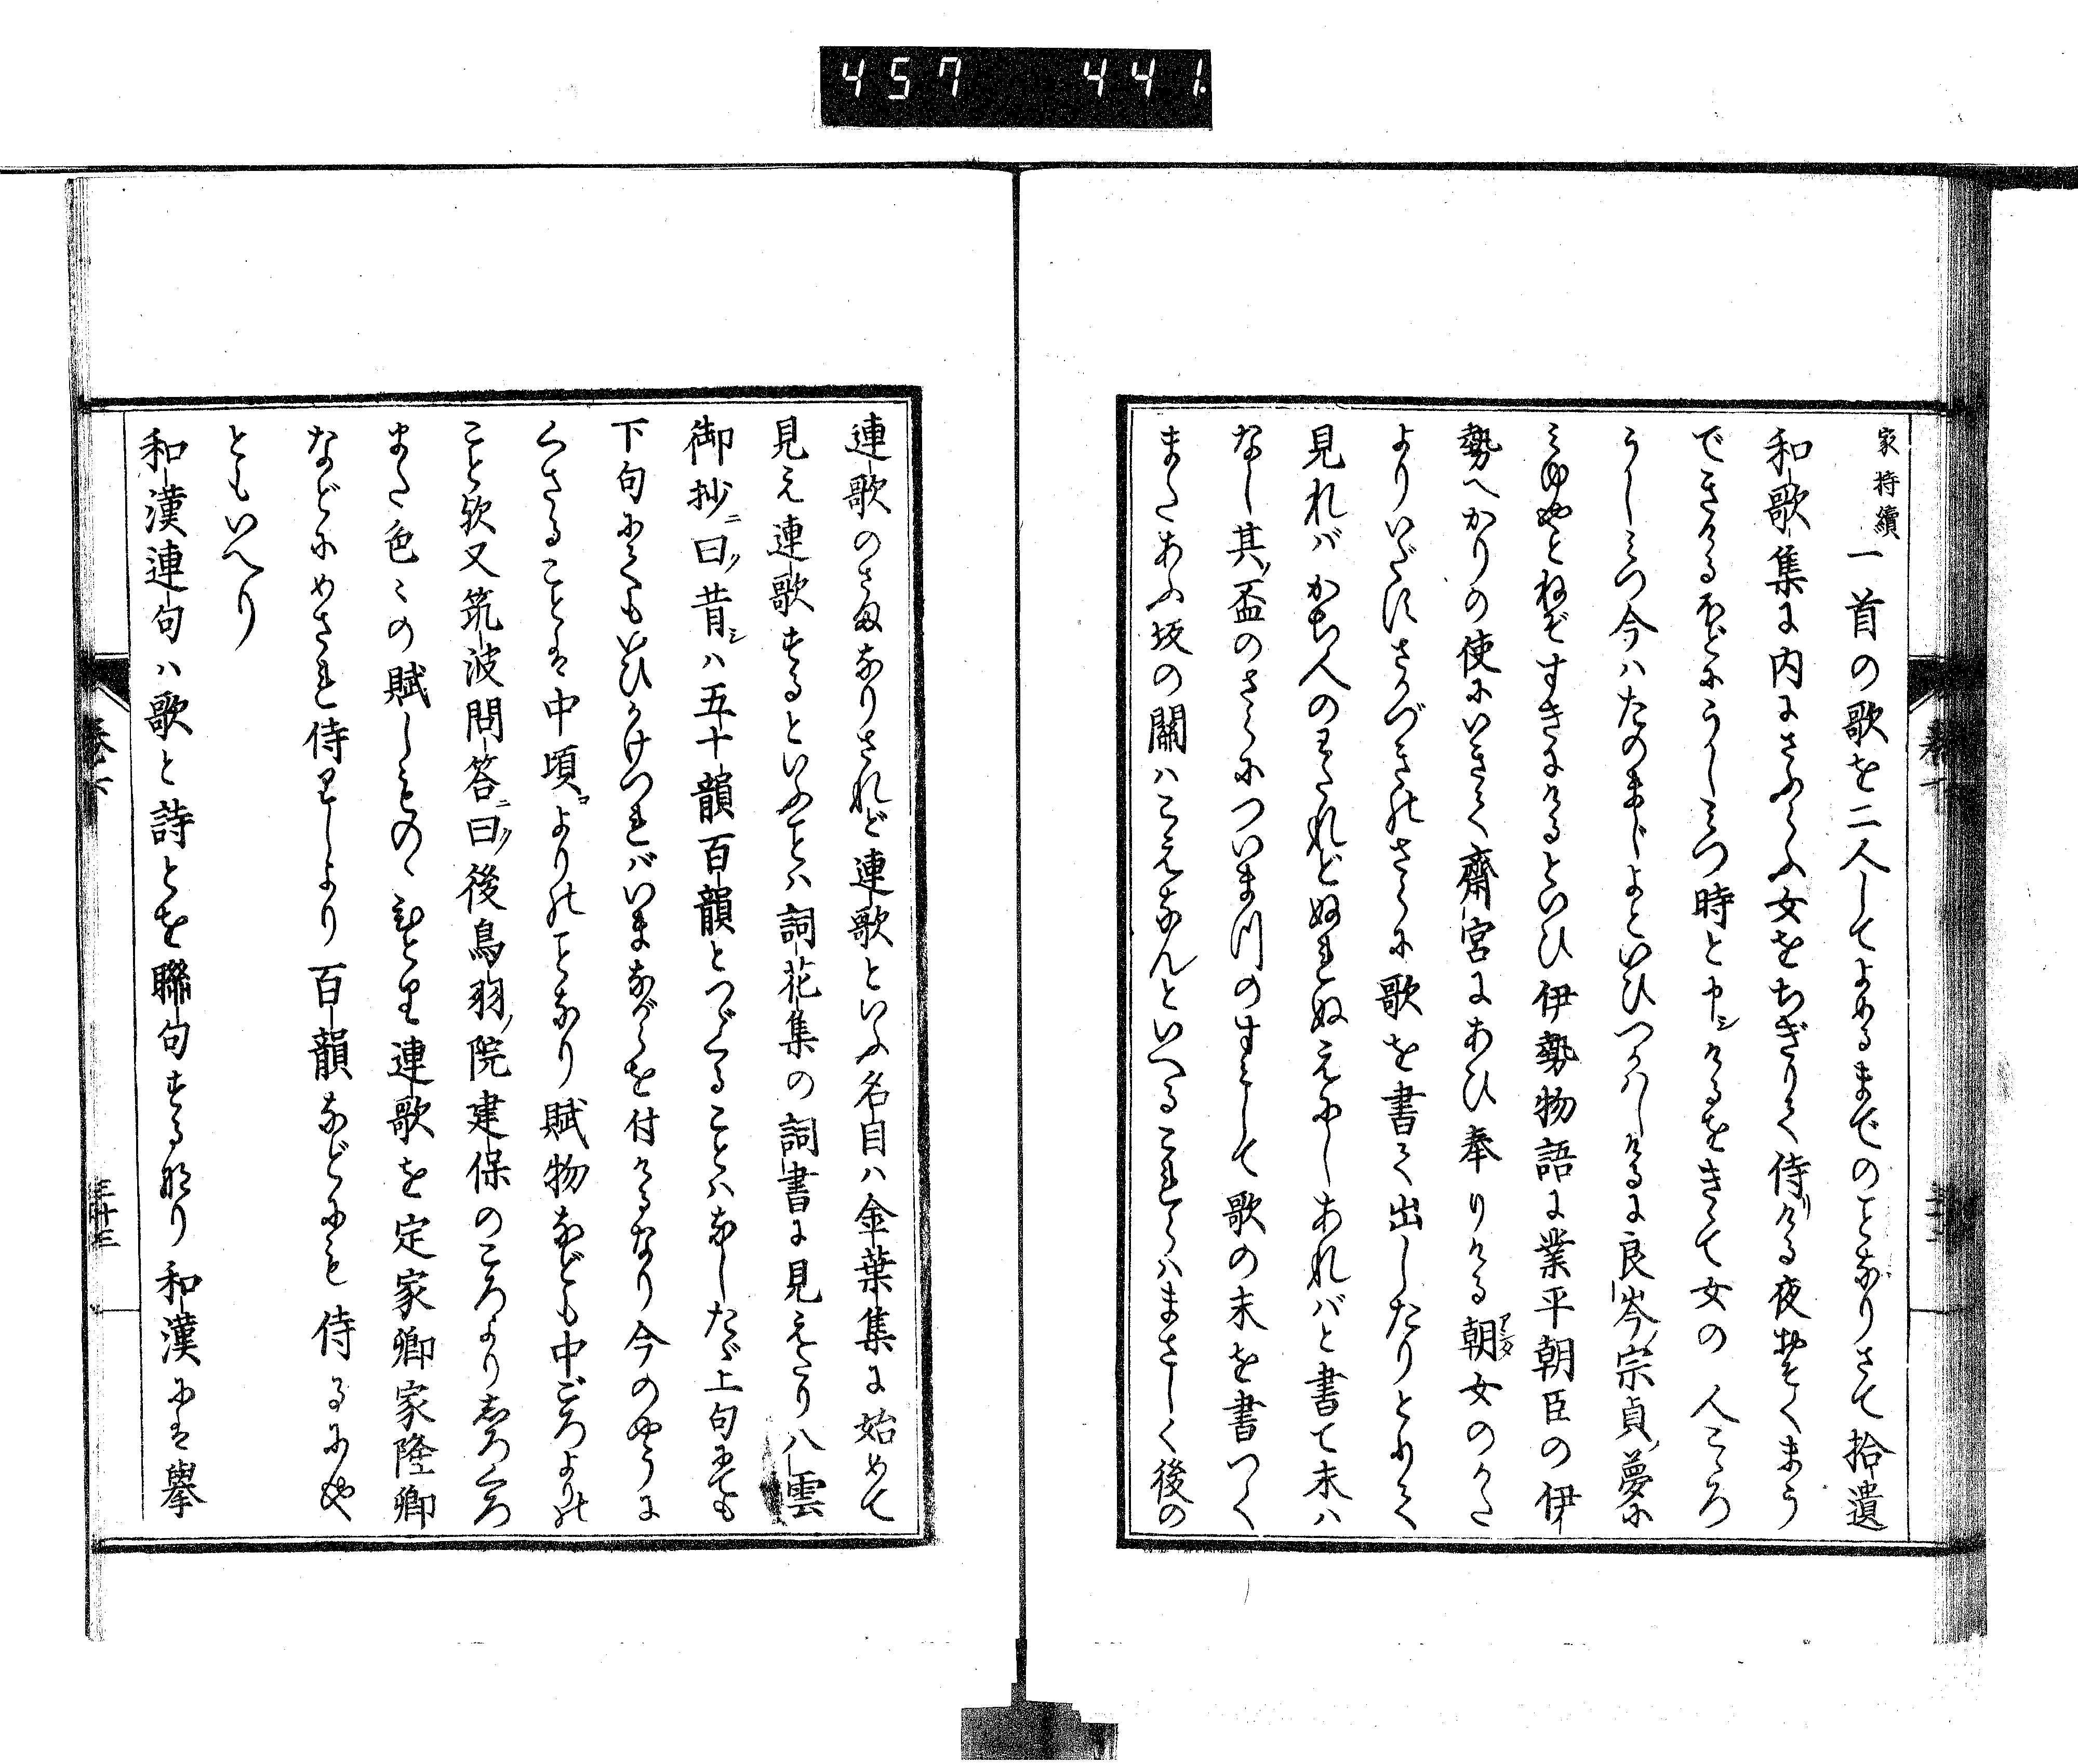 457 441.
家持續
一首の歌を二人してよめるまでのことなりさて拾遺
和歌集に内にさぶらふ女をちぎりて侍りける夜おそくまう
できけるほどにうしみつ時と申シけるをきゝて女の人こゝろ
うしみつ今ハたのまじよといひつかハしけるに良岑ノ宗貞ノ夢に
みゆやとねぞすぎにけるといひ伊勢物語に業平朝臣の伊
勢へかりの使にいきて齋宮にあひ奉りける朝アシタ女のかた
よりいだすさかづきのさらに歌を書て出したりとりて
見れバかち人のわたれどぬれぬえにしあれバと書て末ハ
なし其ノ盃のさらについま川のすみして歌の末を書つく
またあふ坂の關ハこえなんといへるこれらハまさしく後の
連歌のさまなりされど連歌といふ名目ハ金葉集に始めて
見え連歌するといふことハ詞花集の詞書に見えたり八雲
御抄ニ曰ク昔シハ五十韻百韻とつゞくることハなしたゞ上句にても
下句にてもいひかけつれバいまなからを付けるなり今のやうに
くさることは中頃ロよりのことなり賦物なども中ごろよりの
こと欤又筑波問答ニ曰ク後鳥羽ノ院建保のころより志ろくろ
また色ゝの賦しものゝひとり連歌を定家卿家隆卿
などにめされ侍りしより百韻などにも侍るにや
ともいへり
和漢連句ハ歌と詩とを聯句するなり和漢には擧
三十三